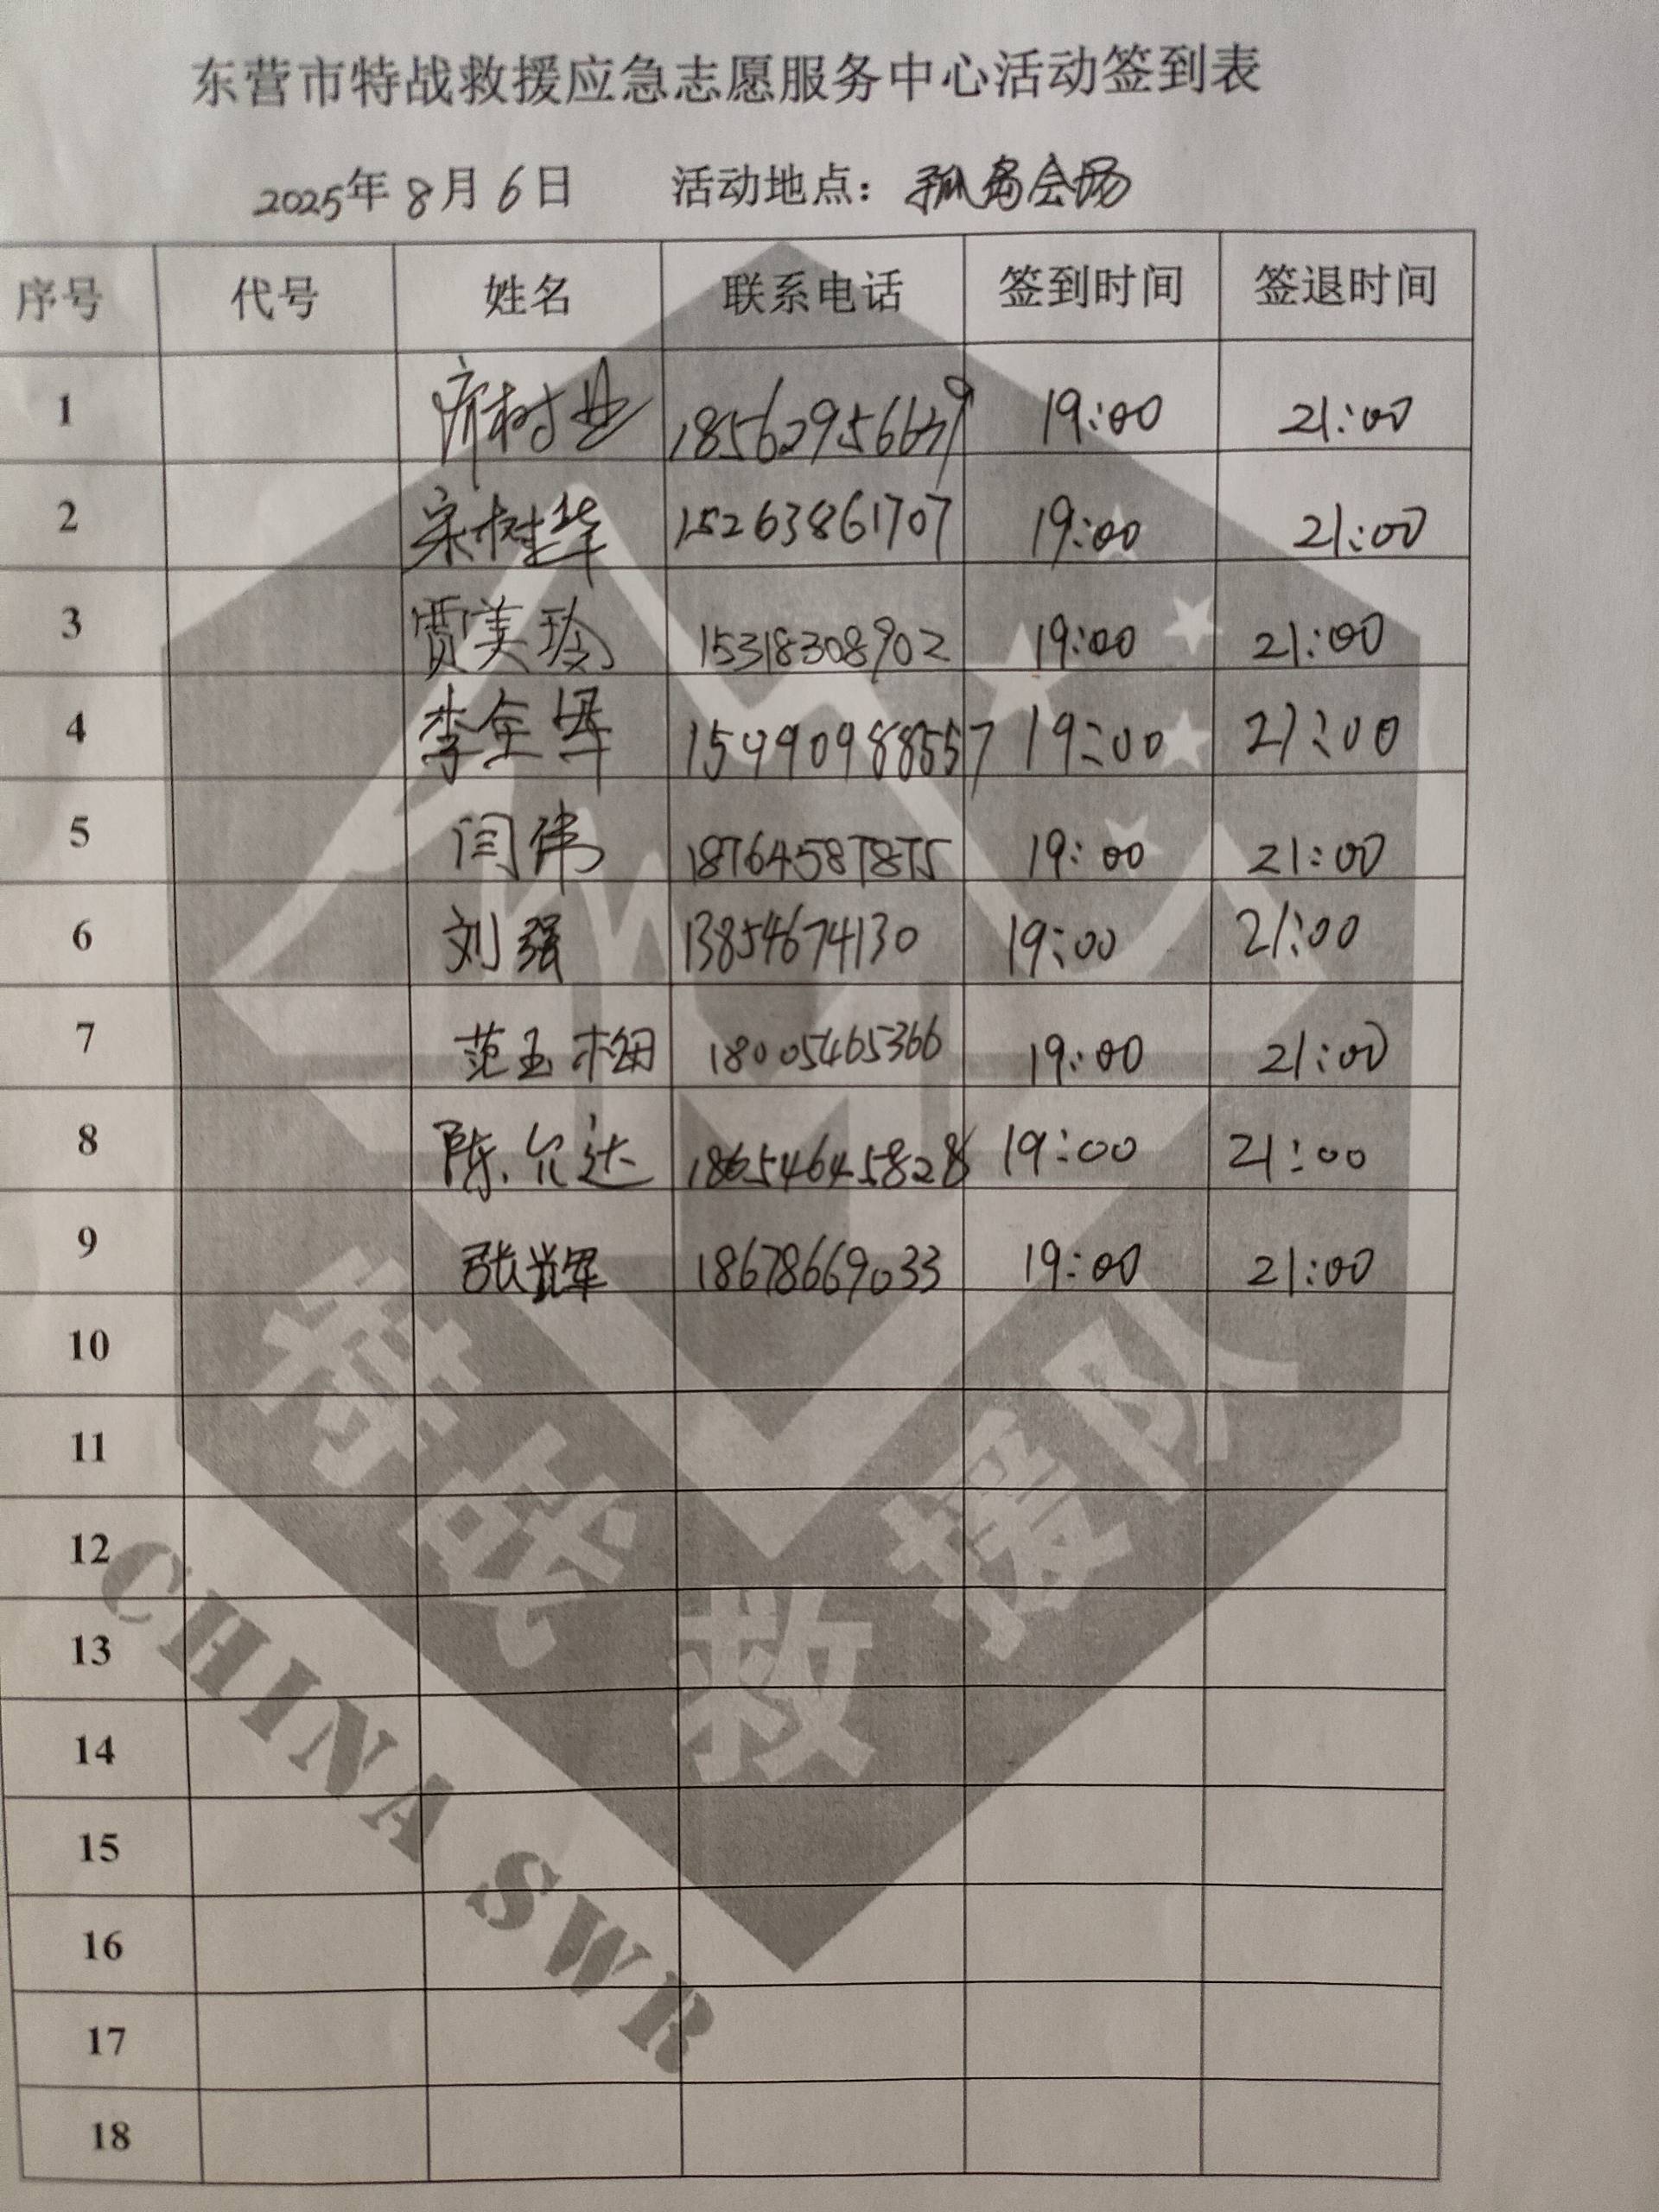 东营市特战救援应急志愿服务中心活动签到表
2025年8月6日 活动地点：孤岛会场
序号 代号 姓名 联系电话 签到时间 签退时间
1 树 19:00 21:00
2 宋树华 15263861707 19:00 21:00
3 贾美玲 15318308902 19:00 21:00
4 李全 19:00 21:00
5 闫伟 18764587875 19:00 21:00
6 刘强 13854674130 19:00 21:00
7 范玉梅 18005465366 19:00 21:00
8 陈允达 18654645828 19:00 21:00
9 张辉 18678669033 19:00 21:00
10
11
12
13
14
15
16
17
18
特战救援队
CHINA SWR